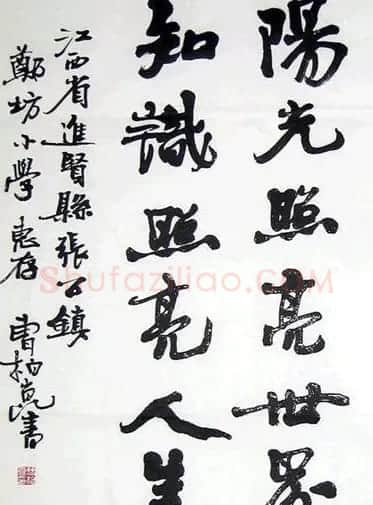 陽光照亮世界
知識照亮人生
江西省進賢縣張公鎮
鄭坊小學惠存
曹柏崑書
Shufaziliao.COM